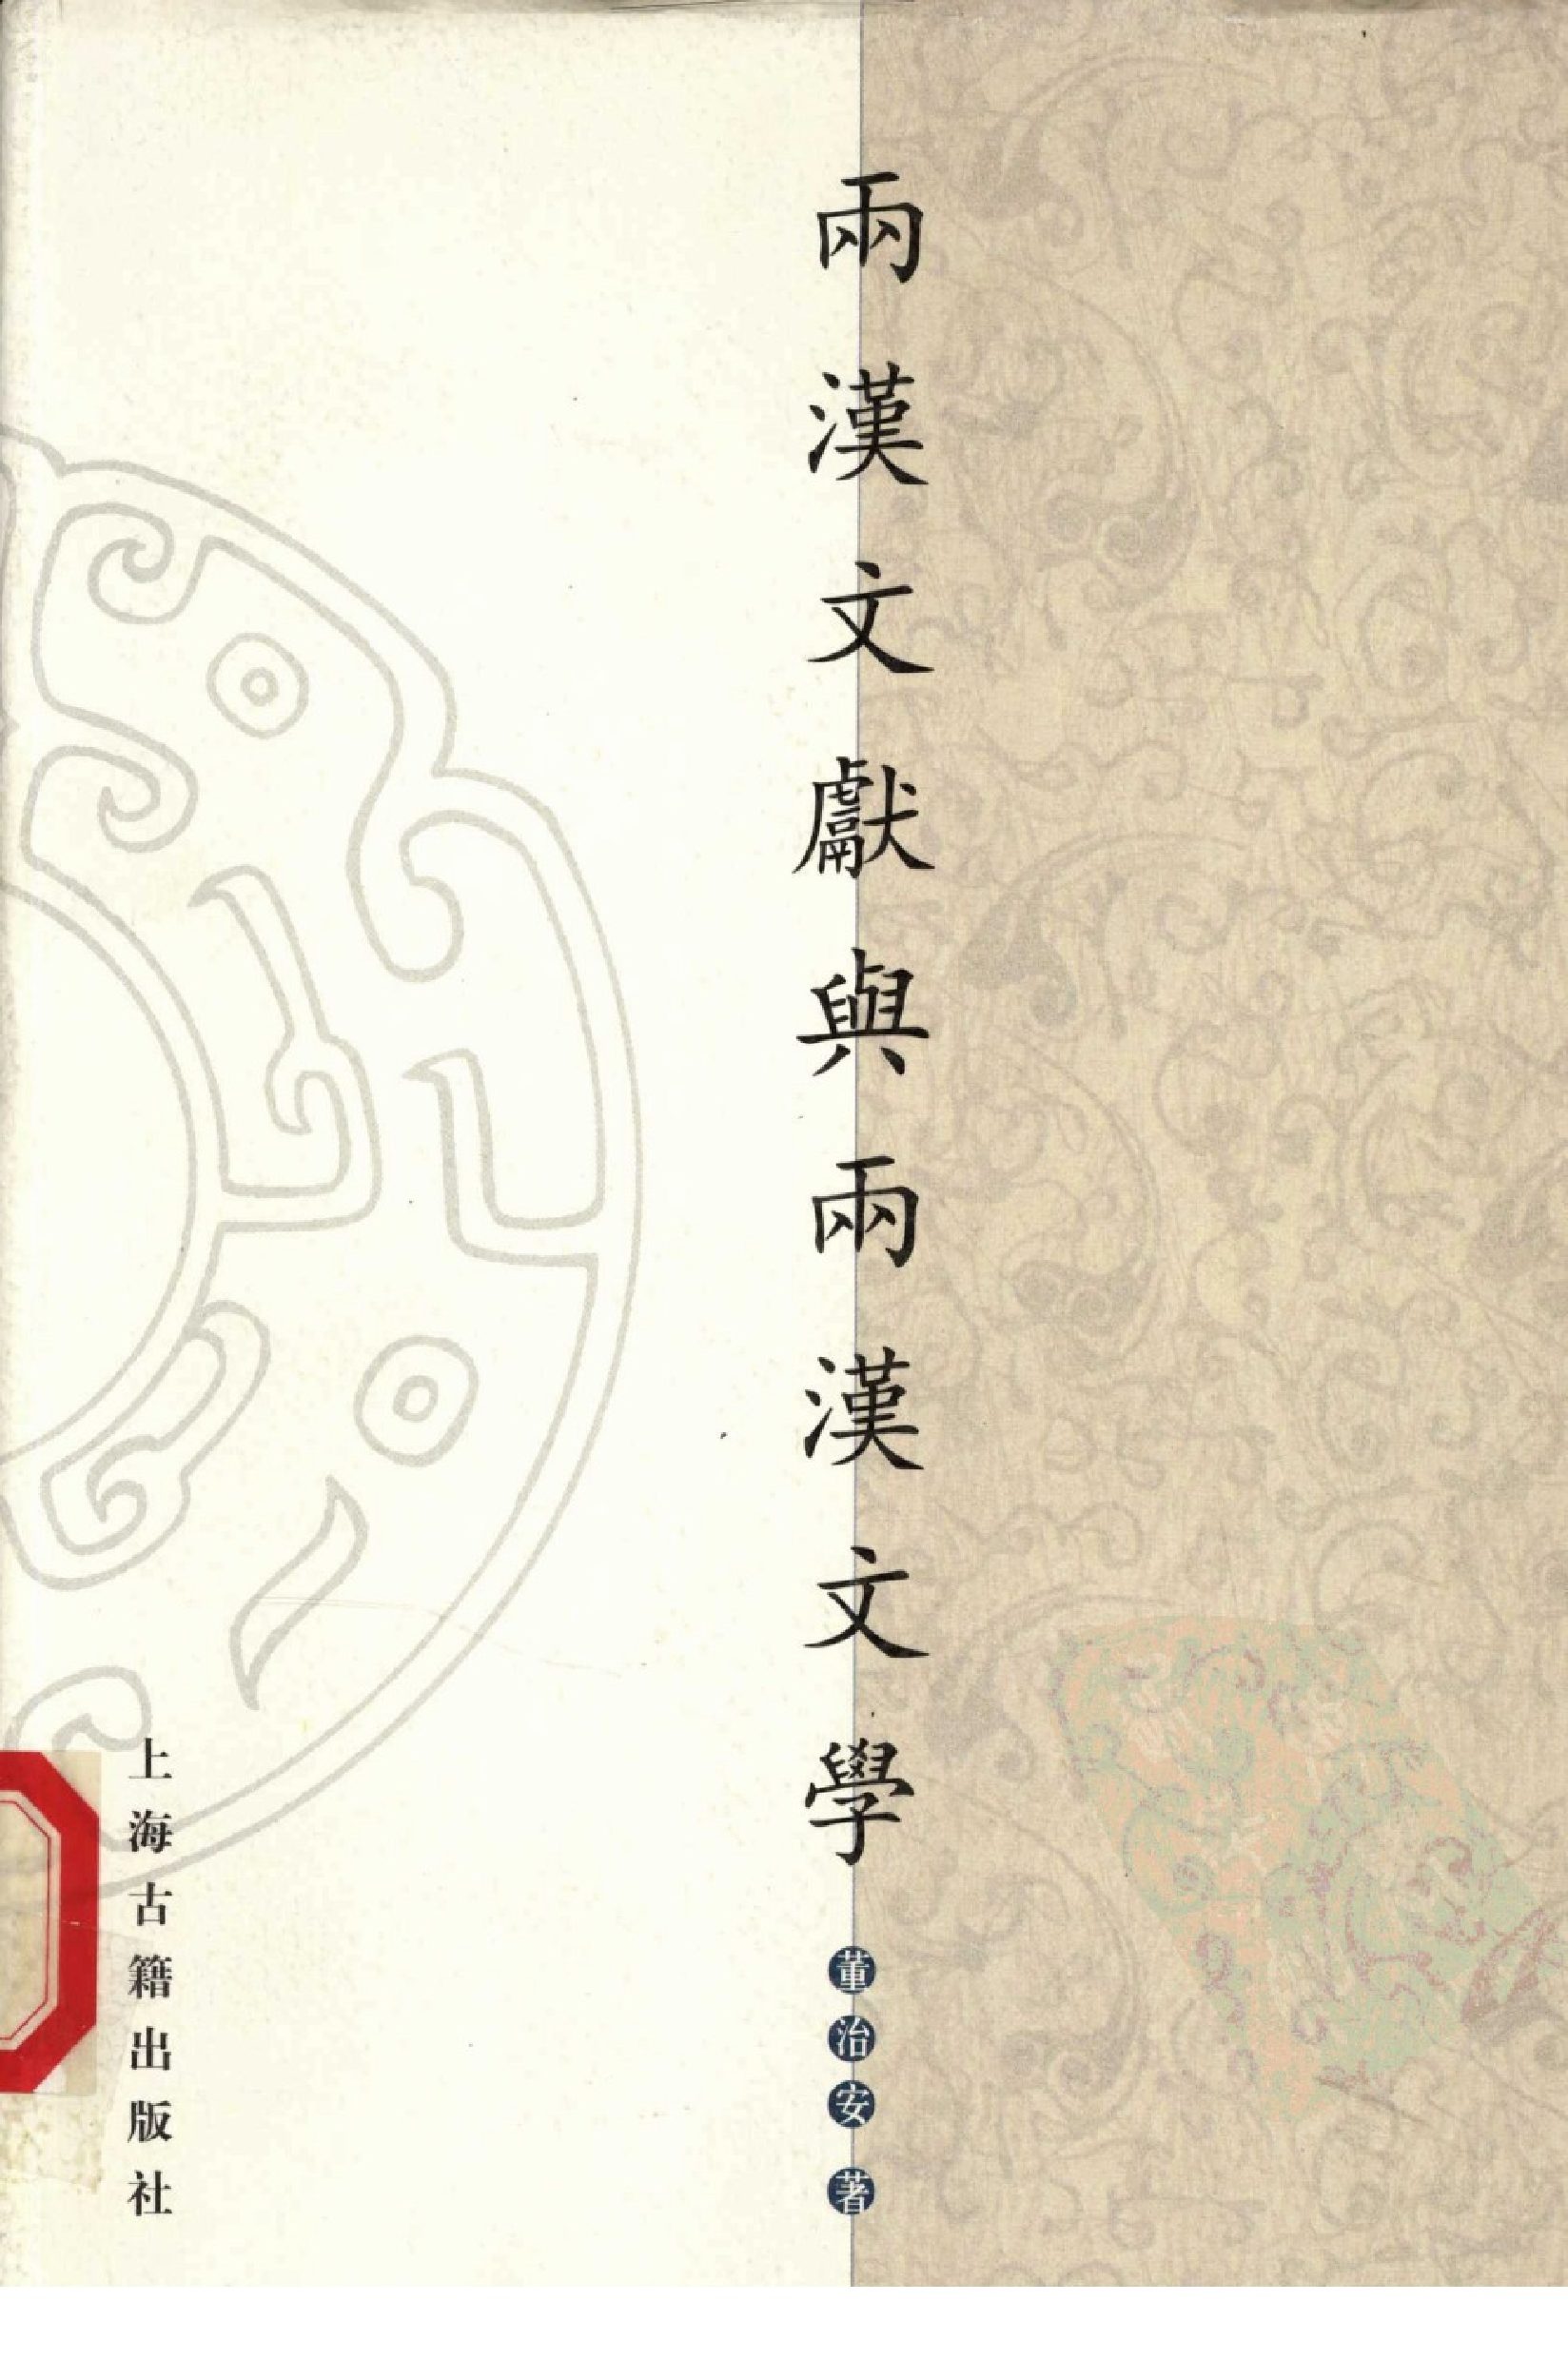 兩漢文獻與兩漢文學
董治安 著
上海古籍出版社